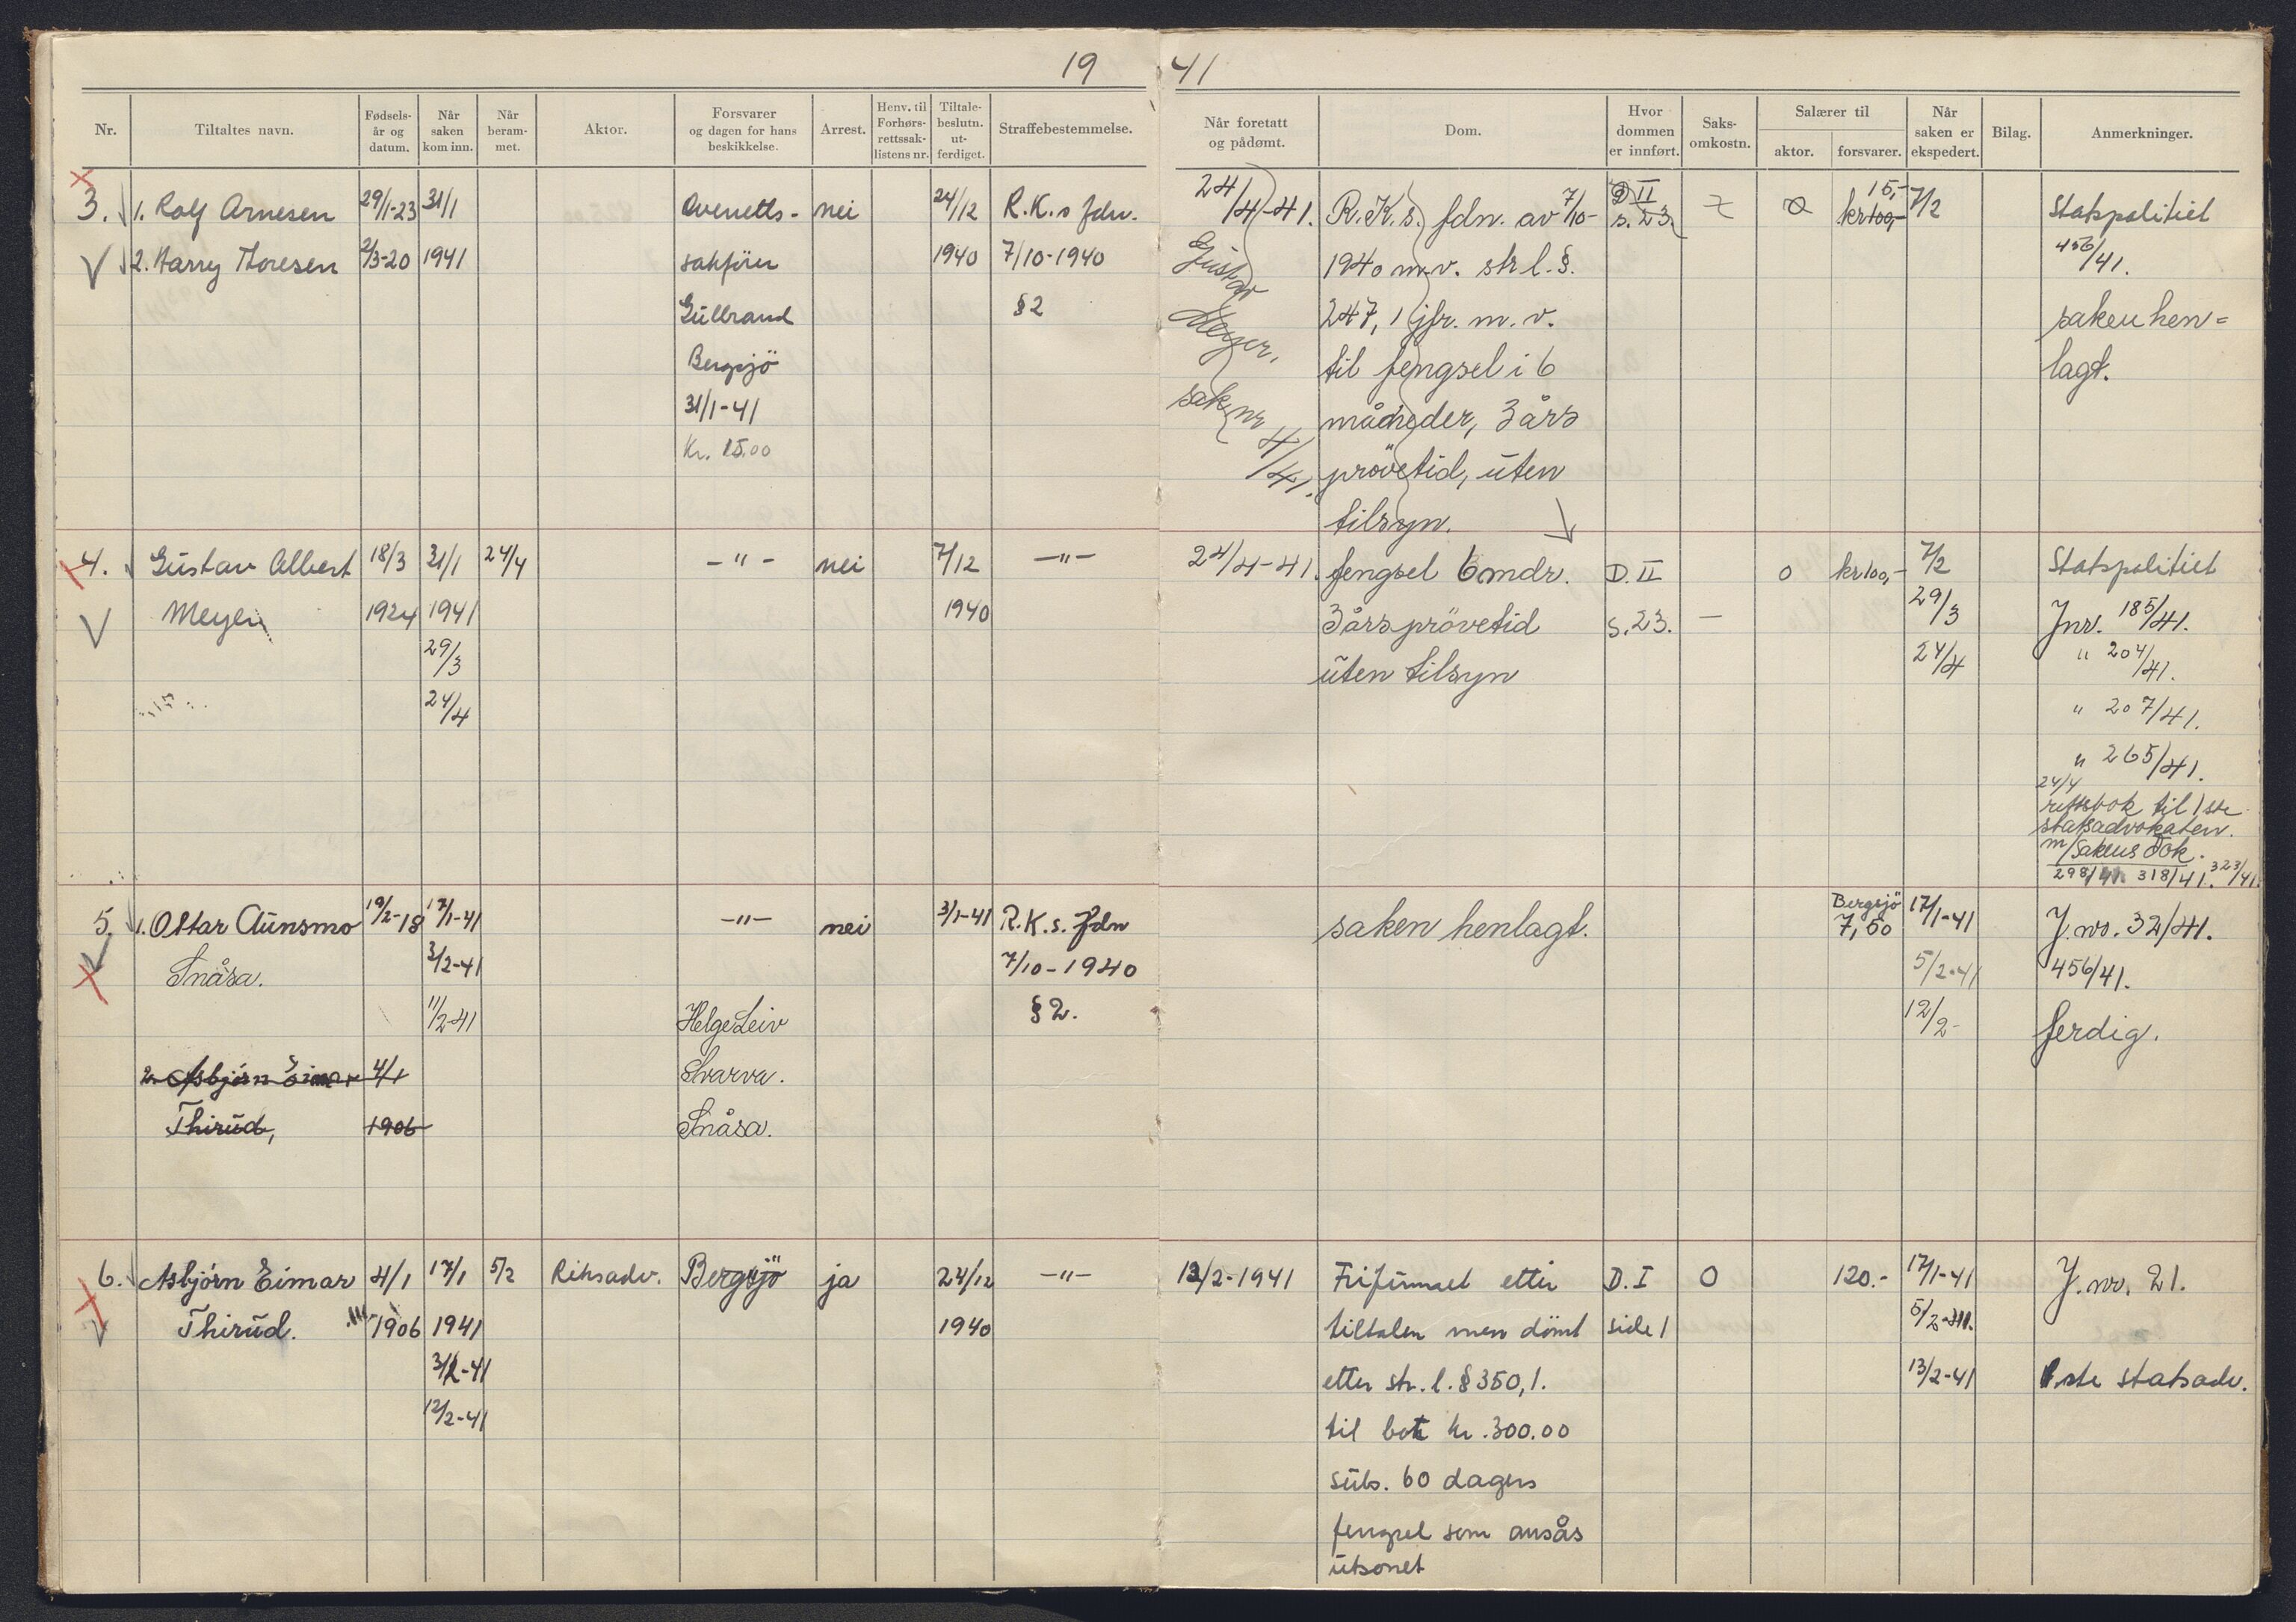 19 41
Nr.
Tiltaltes navn.
Fødsels-
år og
datum.
Når
saken
kom inn.
Når
beram-
met.
Aktor.
Forsvarer
og dagen for hans
beskikkelse.
Arrest.
Henv. til
Forhørs-
rettssak-
listens nr.
Tiltale-
beslutn.
ut-
ferdiget.
Straffebestemmelse.
Når foretatt
og pådømt.
Dom.
Hvor
dommen
er innført.
Saks-
omkostn.
Salærer til
aktor.
forsvarer.
Når
saken er
ekspedert.
Bilag.
Anmerkninger.
3.
1. Rolf Arnesen
2. Harry Thoresen
29/1-23
2/3-20
31/1
1941
Overretts-
sakfører
Gulbrand
Bergsjö
31/1-41
Kr. 15.00
nei
24/12
1940
R.K.s fdn.
7/10-1940
§ 2
24/4-41.
Gustav
Meyer.
sak nr
4/41.
R.K.s. fdn. av 7/10-
1940 m.v. str l. §.
247, 1 jfr. m. v.
til fengsel i 6
måneder, 3 års
prövetid, uten
tilsyn.
D II
s. 23.
0
15,-
kr 100,-
7/2
Statspolitiet
456/41.
saken hen=
lagt.
4.
Gustav Albert
Meyer
18/3
1924
31/1
1941
29/3
24/4
24/4
-"-
nei
7/12
1940
-"-
24/4-41.
fengsel 6 mdr.
3 års prövetid
uten tilsyn
D. II
s. 23.
-
0
kr 100,-
7/2
29/3
24/4
Statspolitiet
Jnr. 185/41.
" 204/41.
" 207/41.
" 265/41.
24/4
rettsbok til 1ste
statsadvokaten.
m/sakens dok.
298/41. 318/41. 323/41.
5.
1. Ottar Aunsmo
Snåsa.
2. Asbjörn Eimar
Thirud,
19/2-18
4/1
1906
17/1-41
3/2-41
11/2-41
-"-
Helge Leiv
Svarva.
Snåsa.
nei
3/1-41
R.K.s. fdn
7/10-1940
§ 2.
saken henlagt.
Bergsjö
7,50
17/1-41
5/2-41
12/2-
J. no. 32/41.
456/41.
ferdig.
6.
Asbjörn Eimar
Thirud.
4/1
1906
17/1
1941
3/2-41
12/2-41
5/2
Riksadv.
Bergsjö
ja
24/12
1940
-"-
12/2-1941
Frifunnet etter
tiltalen men dömt
etter str. l. § 350,1.
til bot kr. 300.00
sub. 60 dagers
fengsel som ansås
utsonet
D. I
side 1
0
120.-
17/1-41
5/2-41.
13/2-41
J. no. 21.
1.ste statsadv.